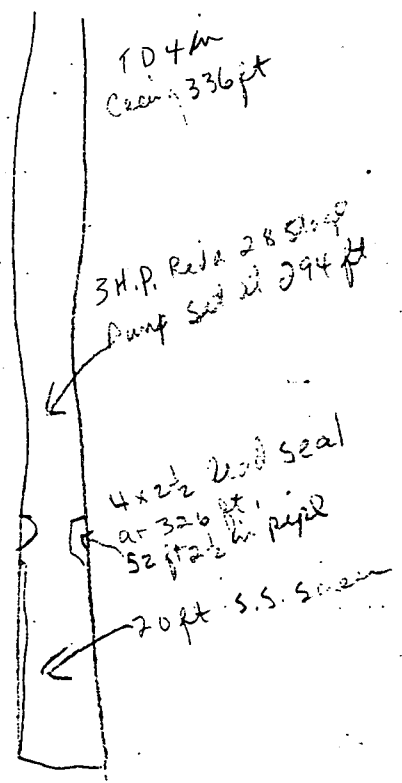 TD 4 in
Casing 336 ft
3 H.P. Reda 28 Stage
Pump Set at 294 ft
4 x 2 1/2 Lead Seal
at 326 ft
52 ft 2 1/2 in pipe
20 ft S.S. Screen